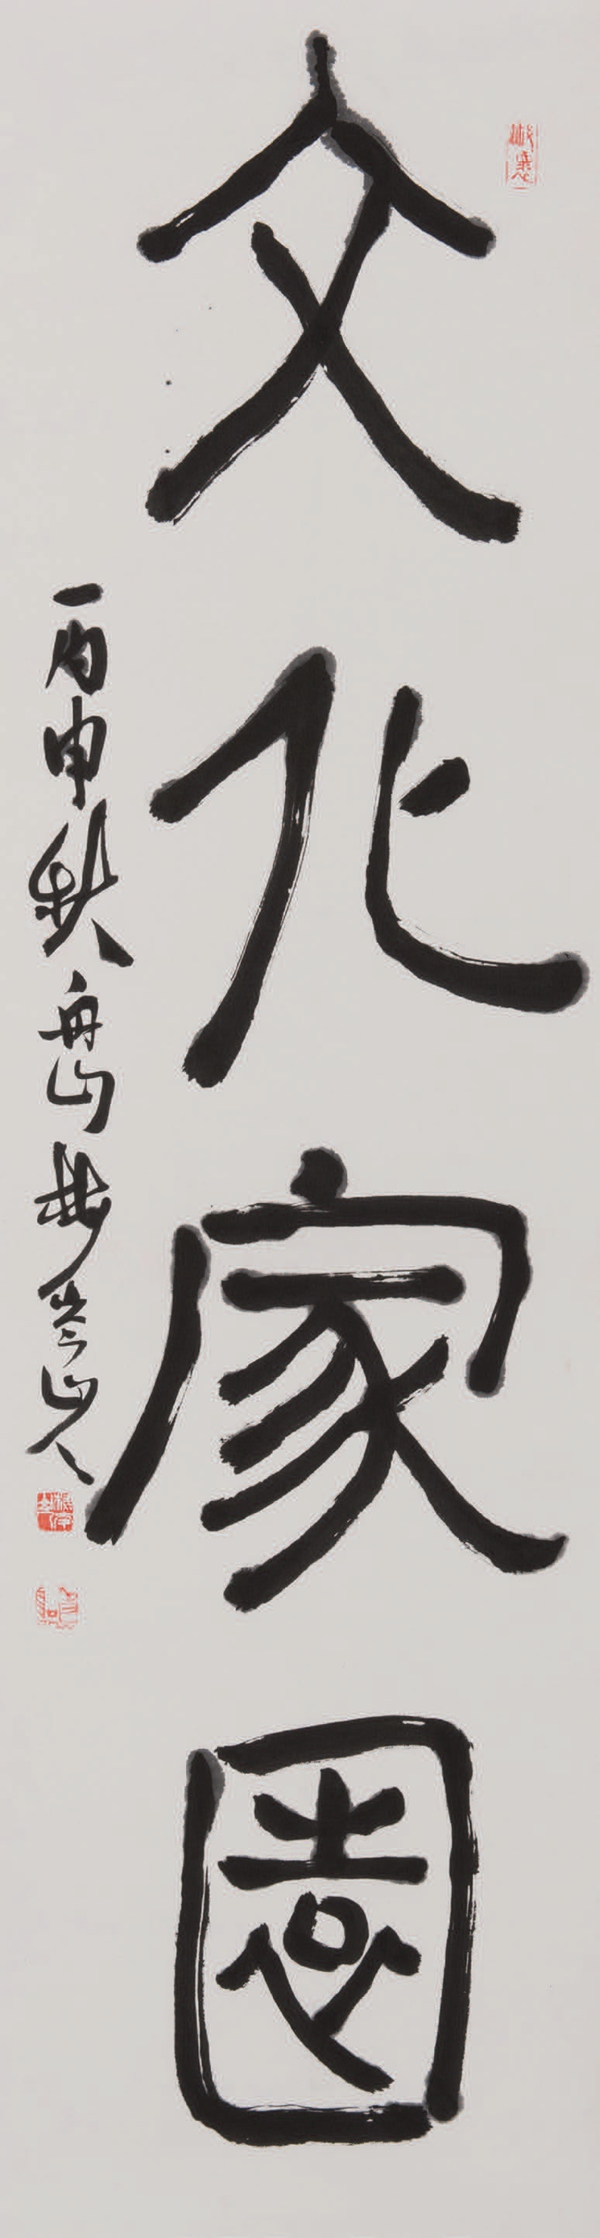 文化家園
丙申秋舟山
山人